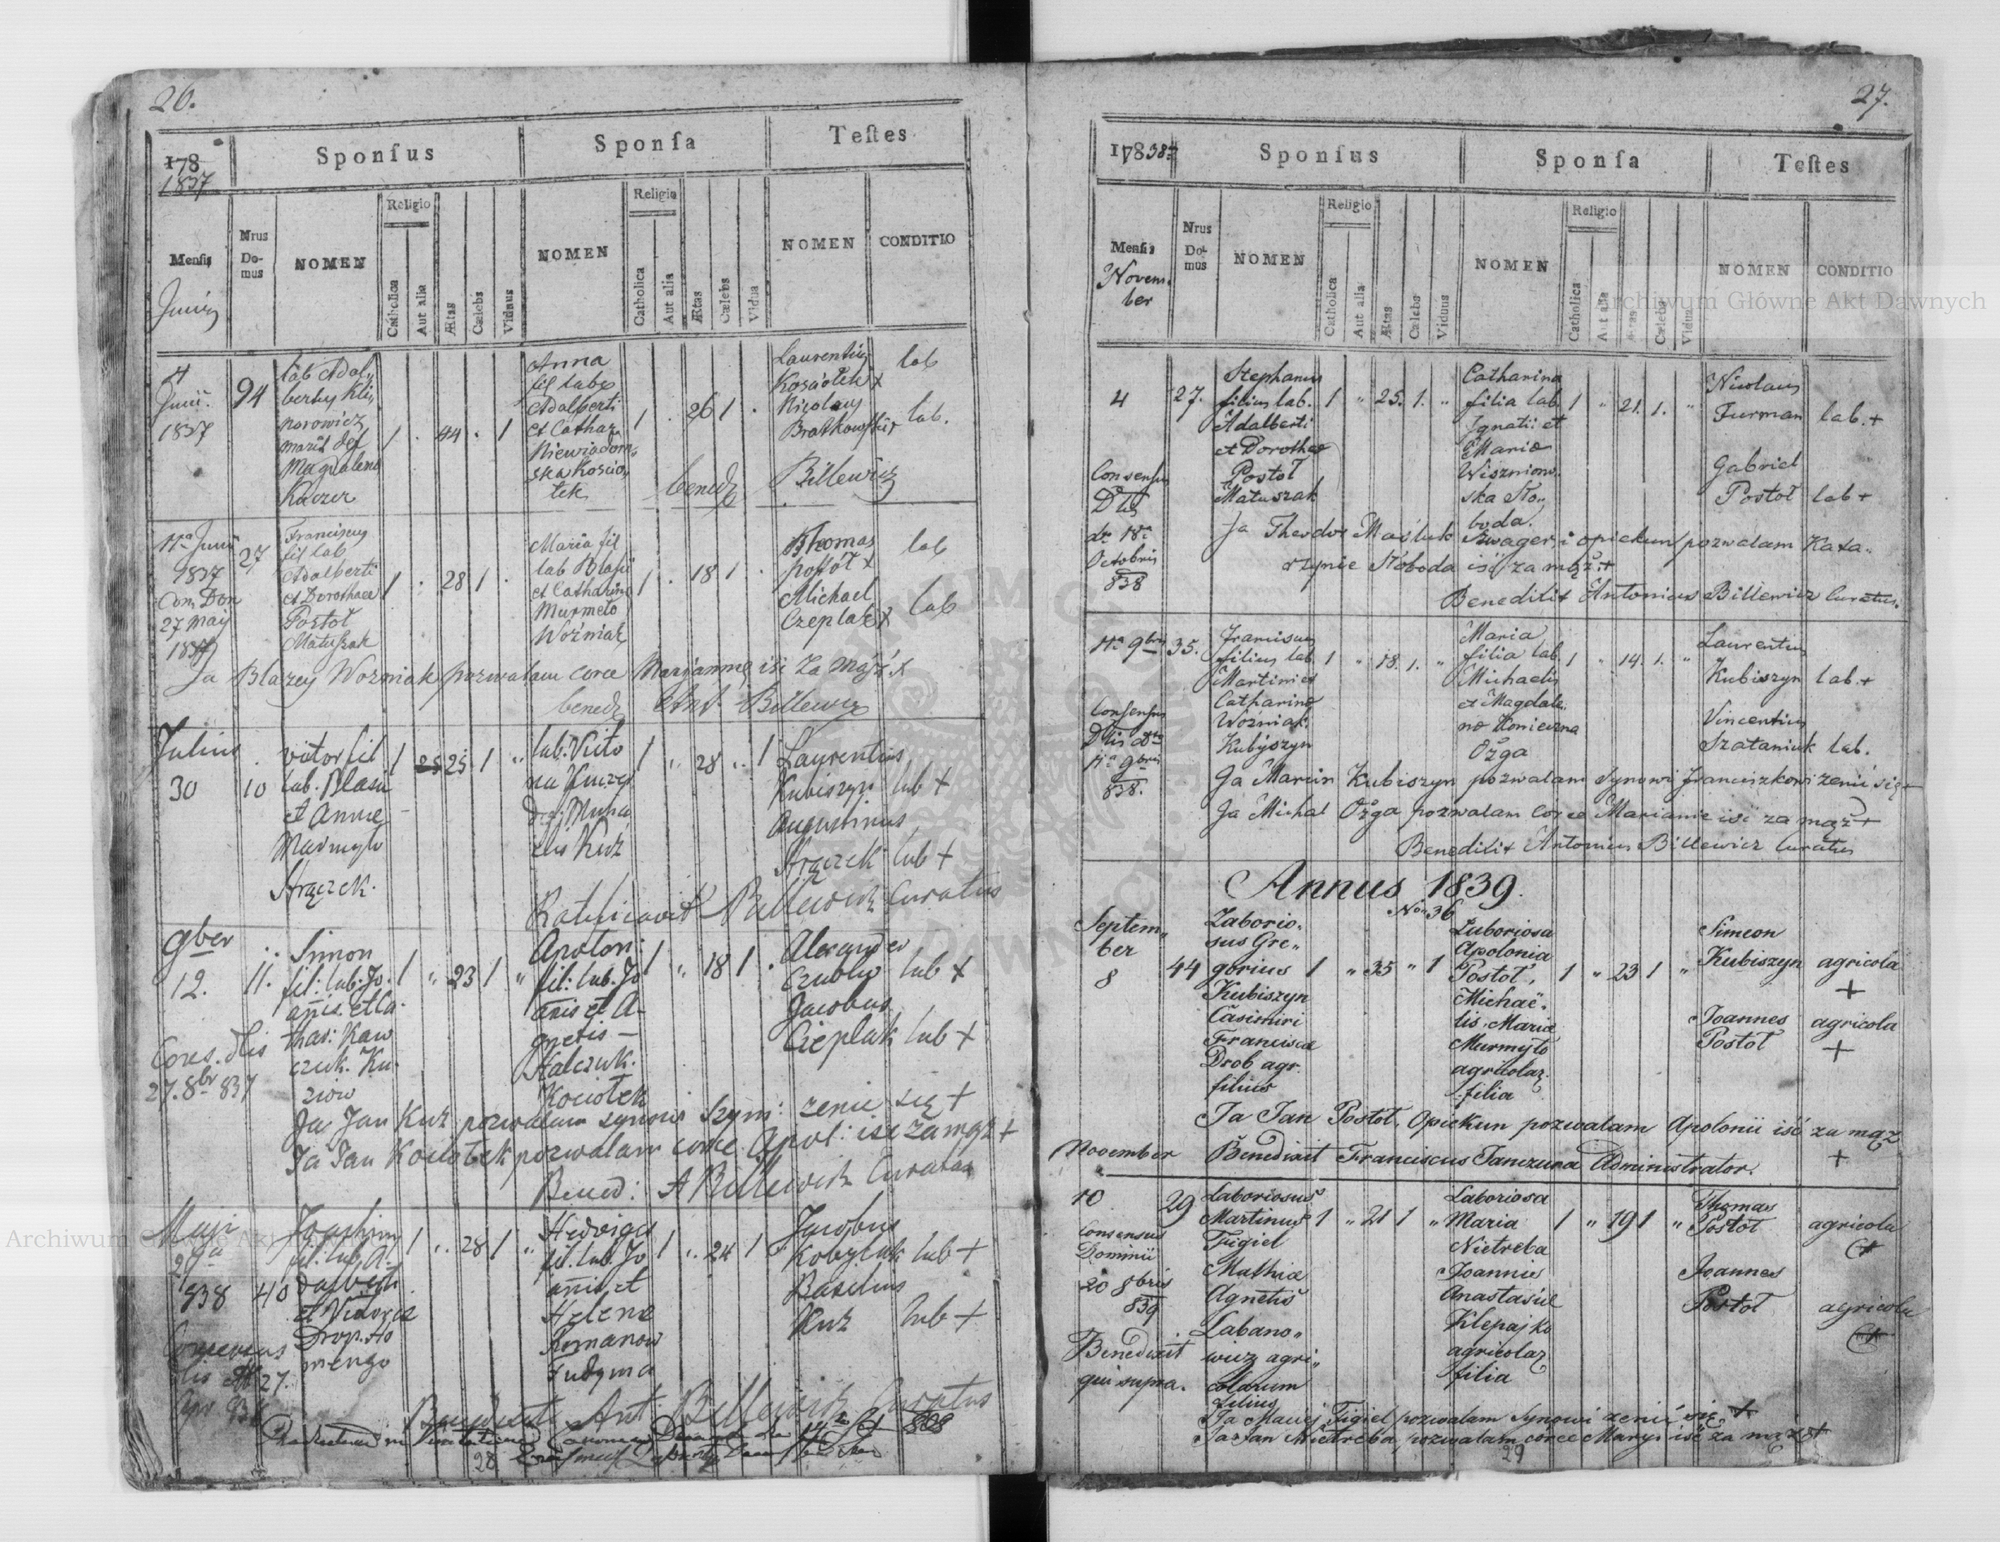 26.
178
1837
Sponſus
Sponſa
Teſtes
Menſis
Junius
Nrus
Do-
mus
NOMEN
Religio
Catholica
Aut alia
Ætas
Cælebs
Viduus
NOMEN
Religio
Catholica
Aut alia
Ætas
Cælebs
Vidua
NOMEN
CONDITIO
Junii
1837
94
lab Adal
1 . 44 . 1
Magdalena
Kaczer
Anna
fil labo
Adalberti
et Cathar
Niewiadom
ska Kościo
tek
1 . 26 1 .
Laurentius
Kosciołek x
lab
Nicolaus
Bratkowski x
lab.
bened
Billewicz
11ª Junii
1837
27
Cons Don
27 May
1837
Franciscus
fil lab
Adalberti
et Dorothaea
Postoł
Matuszak
1 . 28 1 .
Maria fil
lab Blasii
et Catharina
Murmeto
Woźniak
1 . 18 1 .
Thomas
postół x
lab
Michael
Czeplak x
lab
Ja Blazey Wozniak pozwalam corce Marjannie iść za mąż x
bened Ant. Billewicz
Julius
30
10
victor fil
lab. Blasii
et Annae
Marmyto
Strączek.
1 25 25 1 "
lab. Victo
1 . 28 " 1
Laurentius
Kubiszyn lab +
Augustinus
Strączek lab +
Ratificavit Billewicz Curatus
9ber
12.
11.
Cons. dlis
27. 8br 837
Simon
fil: lab: Jo
anis. et Ca
thar: Kaw
czuk. Ku
ziow
1 " 23 1 "
Apoloni
fil: lab: Jo
anis et A
gnetis —
Halczuk.
Kociołek
1 " 18 1 .
Alexander
Czublis lab +
Jacobus
Cieplak lab +
Ja Jan Kuź pozwalam synowi Szym: zenic się +
Ja Jan Kociołek pozwalam corce Apol: iść za mąz +
Bened: A Billewicz Curatus
Maji
838
40
Consensus
Joachim
fil: lab. A-
dalberti
et Victoria
Drop. Ho
mengo
1 " 28 1 "
Hedvigis
fil. lab. Jo
anis et
Helena
Romanow
Fudyma
1 " 24 1
Jacobus
Kobylak lab +
Basilius
Kuź lab +
Benedixit Ant: Billewicz Curatus
28
27.
178 38
Sponſus
Sponſa
Teſtes
Menſis
Novem-
ber
Nrus
Do-
mus
NOMEN
Religio
Catholica
Aut alia
Ætas
Cælebs
Viduus
NOMEN
Religio
Catholica
Aut alia
Ætas
Cælebs
Vidua
NOMEN
CONDITIO
4
27.
Consensus
Dlis
de 18va
Octobris
838
Stephanus
filius lab.
Adalberti
et Dorothea
Postoł
Matuszak
1 " 25. 1. "
Catharina
filia lab.
Ignatii et
Maria
Wiszniow
ska Sło-
boda.
1 " 21. 1. "
Nicolaus
Furman lab. +
Gabriel
Postoł lab +
Ja Theodor Maśluk Szwager i opiekun pozwalam Kata-
rzynie Słoboda iść za mąż +
Benedixit Antonius Billewicz Curatus.
11a 9bris
35.
Consensus
Dlis
838.
Franciscus
filius lab.
Martini et
Catharina
Wozniak
Kubyszyn
1 " 18. 1. "
Maria
filia lab
Michaelis
et Magdale-
na Konieczna
Ożga
1 " 14. 1. "
Laurentius
Kubiszyn lab. +
Vincentius
Szataniuk lab.
Ja Marcin Kubiszyn pozwalam Synowi Franciszkowi zenić się +
Ja Michał Ożga pozwalam corce Mariannie iść za mąż +
Benedixit Antonius Billewicz Curatus
Annus 1839.
Nro 36
Septem-
ber
8
44
Laborio-
sus Gre-
gorius
Kubiszyn
Casimiri
Francisca
Drob agr.
filius
1 " 35 " 1
Laboriosa
Apolonia
Postoł,
Michae-
lis, Maria
Murmyło
agricolaz.
filia
1 " 23 1 "
Simeon
Kubiszyn agricola
+
Joannes agricola
Postoł +
Ja Jan Postoł, Opiekun pozwalam Apolonii iść za mąz
+
November
Benedixit Franciscus Tanczuna Administrator.
10
29
Consensus
Dominii
20 8bris
839
Benedixit
qui supra.
Laboriosus
Martinus
Figiel
Mathia
Agnetis
Labano-
wicz agri-
colarum
filius
1 " 21 1 "
Laboriosa
Maria
Nietreba
Joannis
Anastasiæ
Klepajko
agricolaz
filia
1 " 19 1 "
Thomas
Postoł agricola
+
Joannes
Postoł agricola
+
Ja Maciej Figiel pozwalam Synowi zenić się +
Ja Jan Nietreba pozwalam corce Maryi iść za mąz +
29
Archiwum Główne Akt Dawnych
Archiwum Główne Akt Dawnych